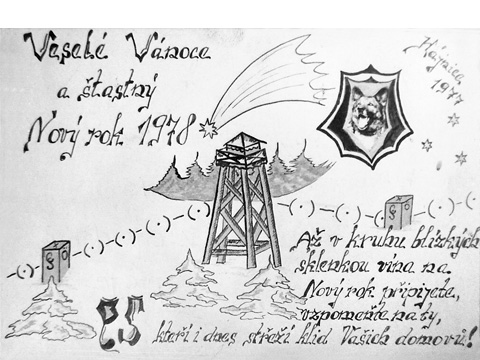 Veselé Vánoce
a šťastný
Nový rok 1978
Hájnice
1977
Až v kruhu blízkých
sklenkou vína na
Nový rok připijete,
vzpomeňte na ty,
kteří i dnes střeží klid Vašich domovů!
PS